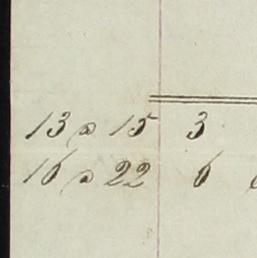 13 a 15 3
16 a 22 6